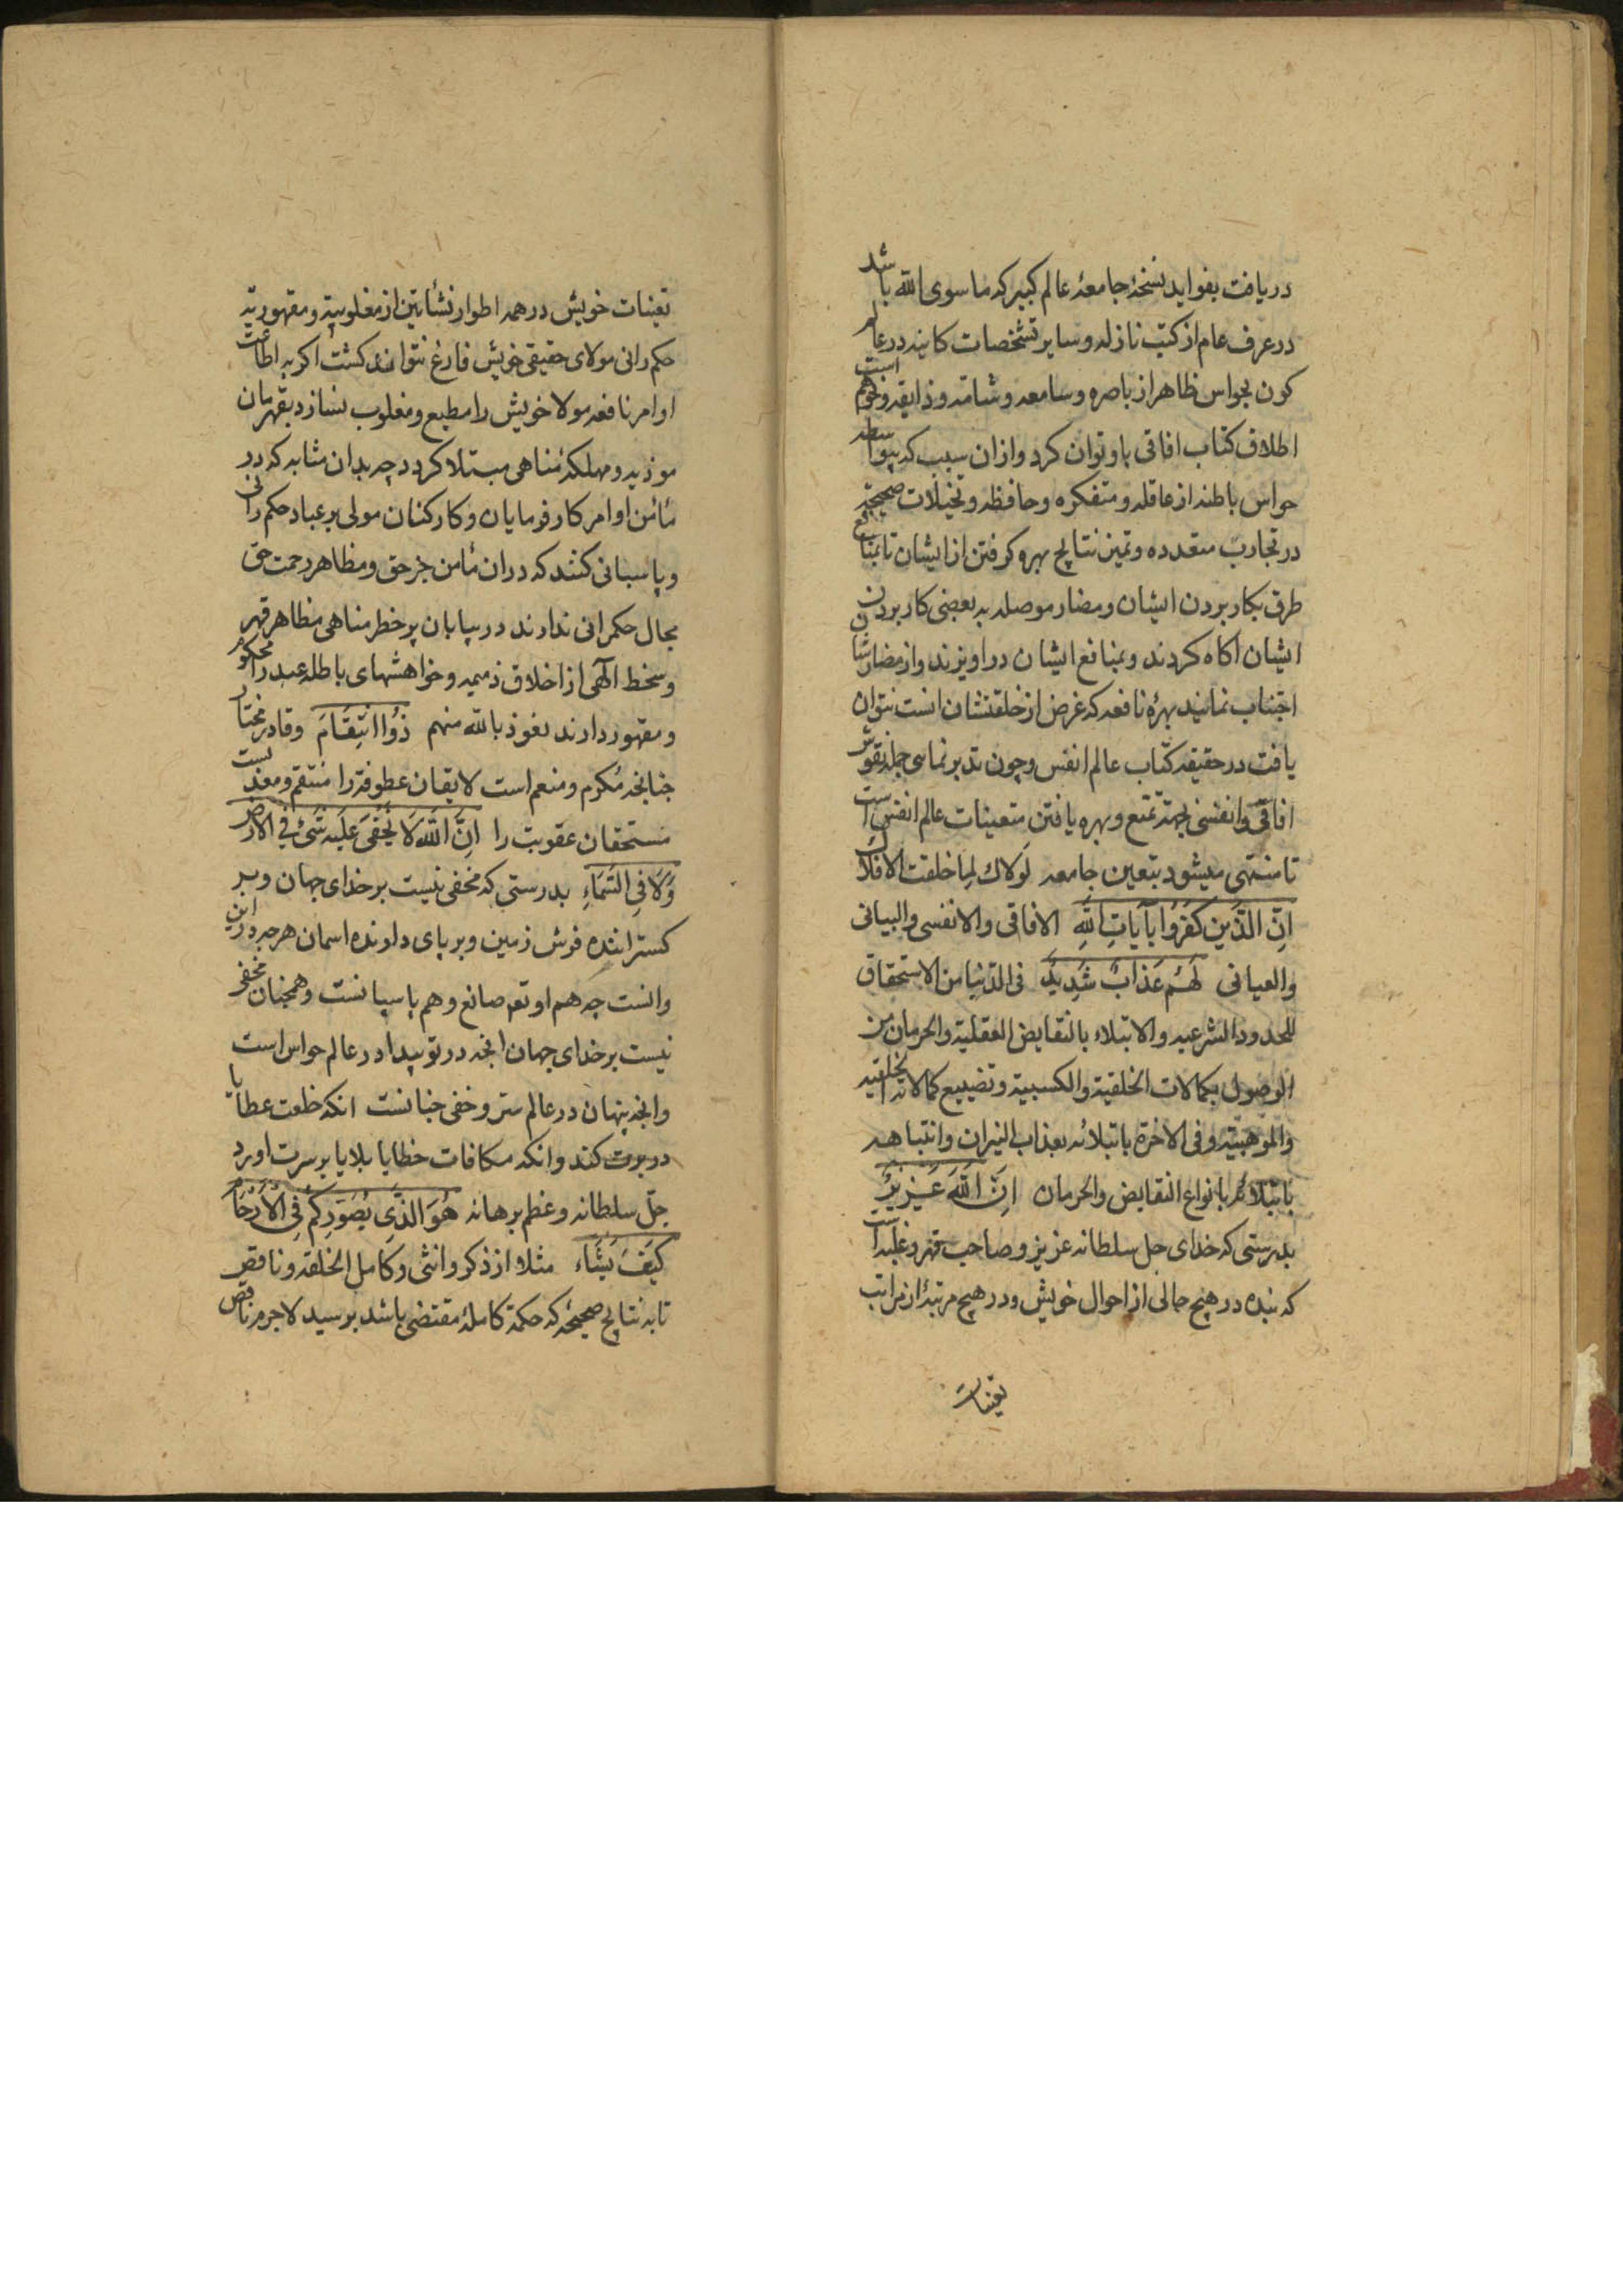 دریافت بفواید نسخهٔ جامعهٔ عالم کبیر که ماسوی الله باشد
در عرف عام از کتب نازله و سایر تشخصات کاینه در عالم
کون بحواس ظاهر از باصره و سامعه و شامه و ذایقه و نحوهم است
اطلاق کتاب افاقی باو توان کرد و ازان سبب که بتواسطه
حواس باطنه از عاقله و متفکره و حافظه و تخیلات صحیحه
در تجارب متعدده و تمین نتایج بهره کرفتن از ایشان تا بمنافع
طرق بکار بردن ایشان و مضار موصله به بعضی کار بردن
ایشان اکاه کردند و بمنافع ایشان در اویزند و از مضارشان
اجتناب نمانید بهرهٔ نافعه که غرض از خلقتشان انست نتوان
یافت در حقیقه کتاب عالم انفس و چون تدبر نمای جمله نقوش
افاقی و انفسی بجهة تمتع و بهره یافتن متعینات عالم انفس است
تا منتهی میشود بتعین جامعه لولاك لما خلقت الافلاك
اِنَّ الَّذَینَ کَفَرُوا بآیاتِ اللهِ الافاقی والانفسی والبیانی
والعیانی لَهُم عَذَابٌ شَدِیدٌ فی الدّنیا من الاستحقاق
للحدود الشرعیه والابتلاء بالنقایض العقلیة والحرمان من
الوصول بکمالات الخلقیة والکسبیة وتضییع کمالاته الخلقیه
والموهبیة وفی الاخرة بابتلائه بعذاب النیران وانتباهه
بابتلائهم بانواع النقایض والحرمان اِنَّ اللهَ عَزیزٌ
بدرستی که خدای جل سلطانه عزیز و صاحب قهر و غلبه است
که بنده در هیچ حالی از احوال خویش و در هیچ مرتبهٔ از مراتب
تعینات
تعینات خویش در همه اطوار نشأتین از مغلوبیة و مقهوریة
حکم رانی مولای حقیقی خویش فارغ نتواند کشت اکر به اطاعت
اوامر نافعه مولا خویش را مطیع و مغلوب نسازد بقهرمان
موذیه و مهلکهٔ مناهی مبتلا کردد چه بدان مثابه که در
مأمن اوامر کارفرمایان و کارکنان مولی بر عباد حکم رانی
و پاسبانی کنند که دران مأمن جز حق و مظاهر رحمت حق
مجال حکمرانی ندارند در بیابان پر خطر مناهی مظاهر قهر
و سخط الهی از اخلاق ذمیمه و خواهشهای باطله عبد را محکوم
و مقهور دارند نعوذ بالله منهم ذُوا انتِقَامَ و قادر مختار
چنانچه مکرم و منعم است لایقان عطوفة را منتقم و معذبست
مستحقان عقوبت را اِنَّ اللهَ لَا یَخْفَی عَلَیه شَیْئ فِی الارضِ
وَلَا فِی السَّمَاءِ بدرستی که مخفی نیست بر خدای جهان و بر
کستراننده فرش زمین و بر پای دارنده اسمان هرچه در این
وانست چه هم او تعو صانع و هم پاسبانست و همچنان مخفی
نیست بر خدای جهان انچه در تو پیدا در عالم حواس است
وانچه پنهان در عالم ستر و خفی جنانست انکه خلعت عطایا
در برت کند وانکه مکافات خطایا بلایا بر سرت اورد
جلّ سلطانه وعظم برهانه هُوَ الَّذِی یُصَوِّرُکُمْ فِی الْاَرْحَامِ
کَیْفَ یَشَاء مثلا از ذکر وانثی و کامل الخلقه و ناقص
تا به نتایج صحیحه که حکمة کامله مقتضی باشد برسید لاجرم ناقص